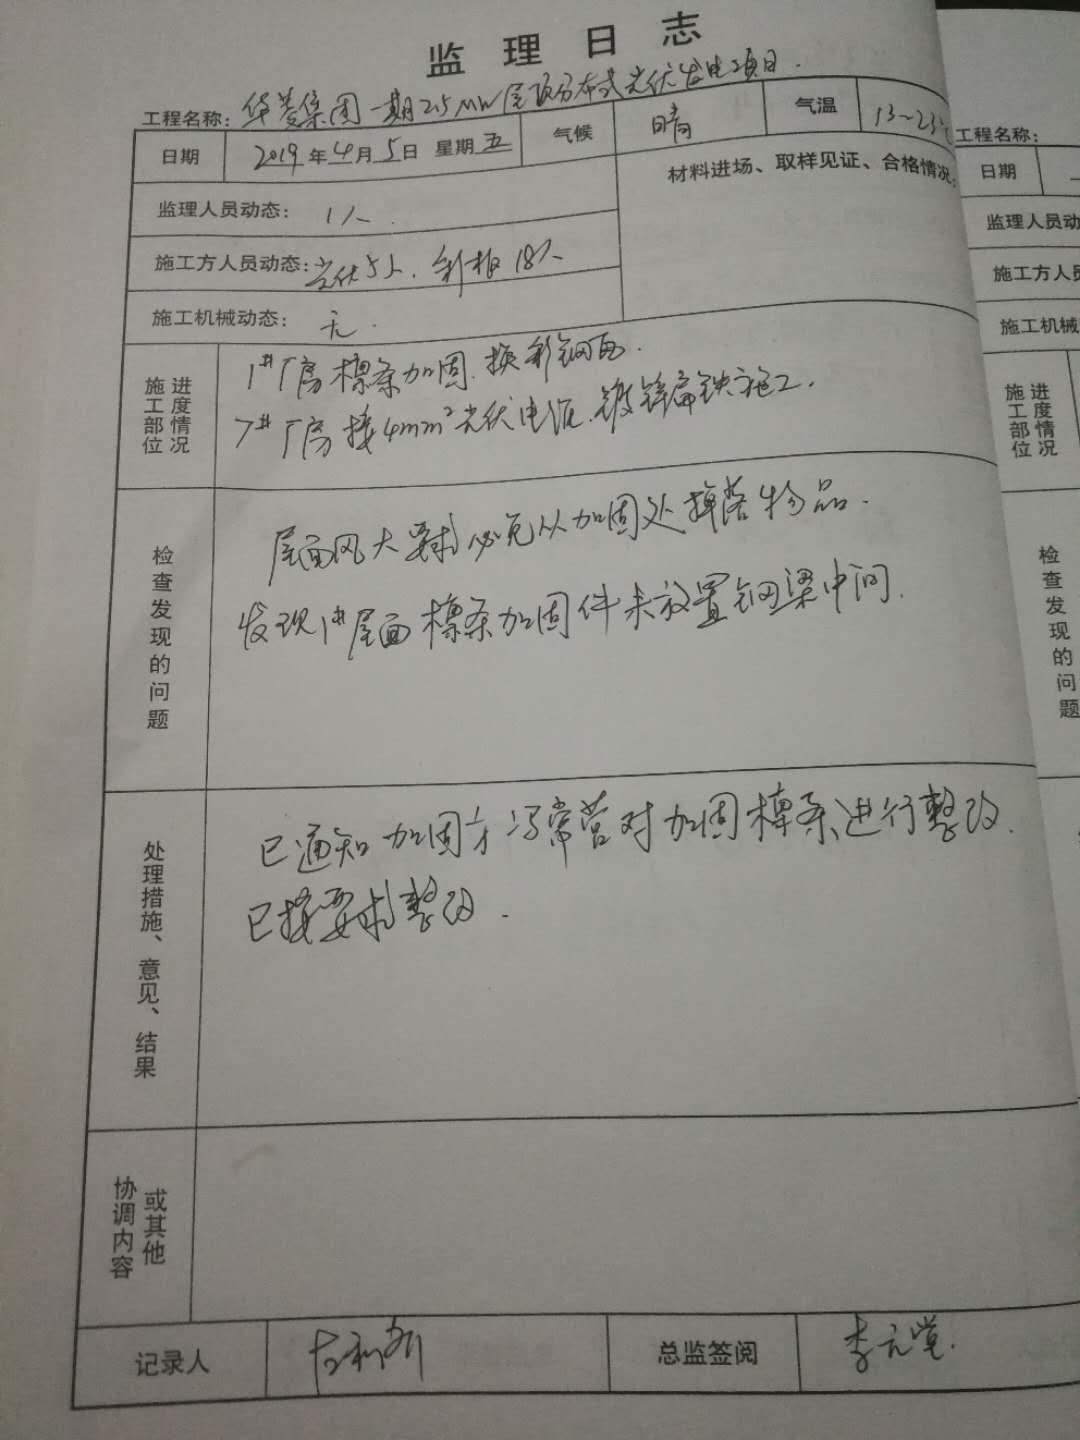 监理日志
工程名称：华菱集团一期2.5MW屋顶分布式光伏发电项目.
日期 2019年4月5日 星期五 气候 晴 气温 13~23℃
监理人员动态： 1人.
材料进场、取样见证、合格情况：
施工方人员动态：光伏5人. 彩板18人
施工机械动态： 无.
施工部位 进度情况
1#厂房檩条加固.换彩钢瓦.
7#厂房接4mm²光伏电缆.镀锌扁铁施工.
检查发现的问题
屋面风大要求必免从加固处掉落物品.
发现1#屋面檩条加固件未放置钢梁中间.
处理措施、意见、结果
已通知加固方冯常营对加固檩条进行整改.
已按要求整改.
协调内容 或其他
记录人
总监签阅 李元党.
工程名称：
日期
监理人员动
施工方人员
施工机械
施工部位 进度情况
检查发现的问题